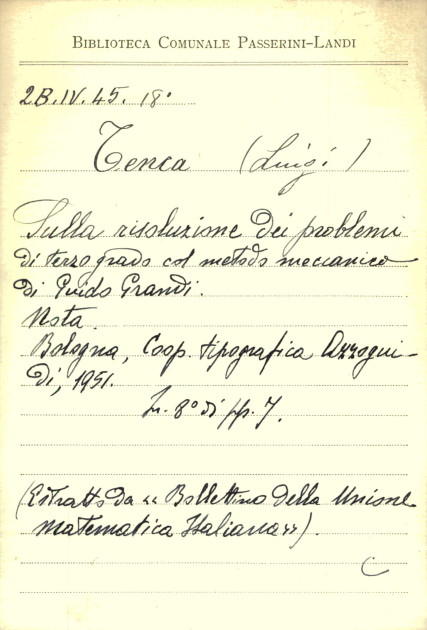 BIBLIOTECA COMUNALE PASSERINI-LANDI
2B.IV.45. 18°
Tenca (Luigi)
Sulla risoluzione dei problemi
di terzo grado col metodo meccanico
di Guido Grandi.
Nota.
Bologna, Coop. tipografica Azzogui-
di, 1951.
In 8° di pp. 7.
(Estratto da «Bollettino della Unione
Matematica Italiana»).
C